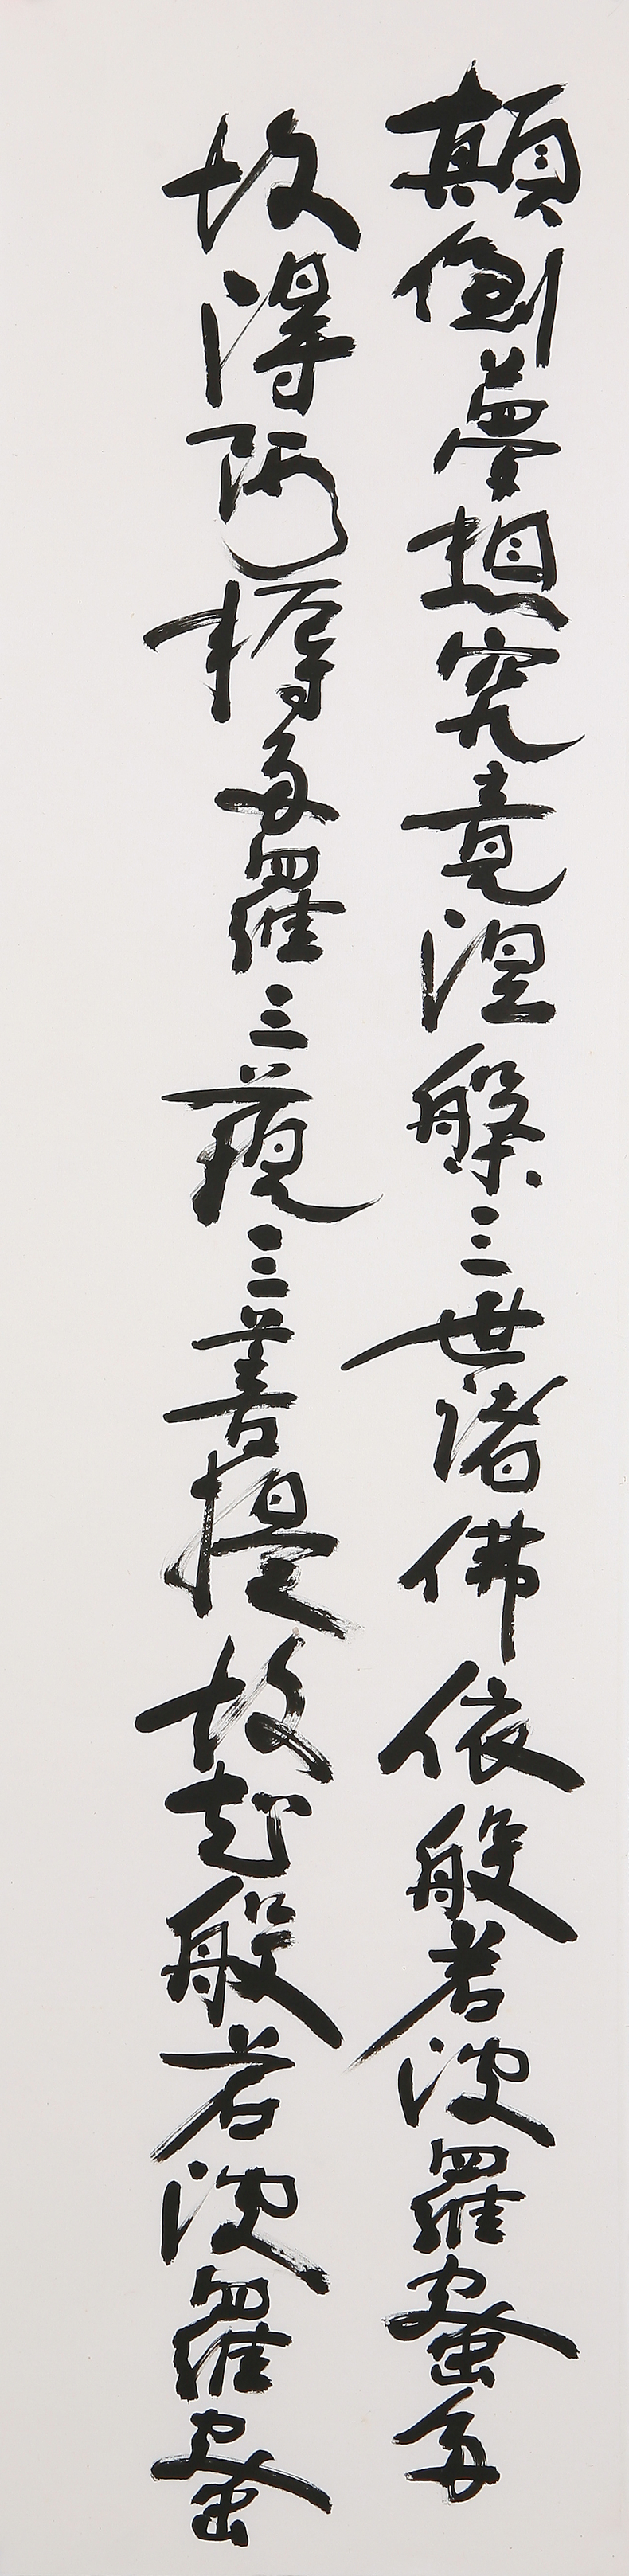 顛倒夢想究竟涅槃三世諸佛依般若波羅蜜多
故得阿耨多羅三藐三菩提故知般若波羅蜜